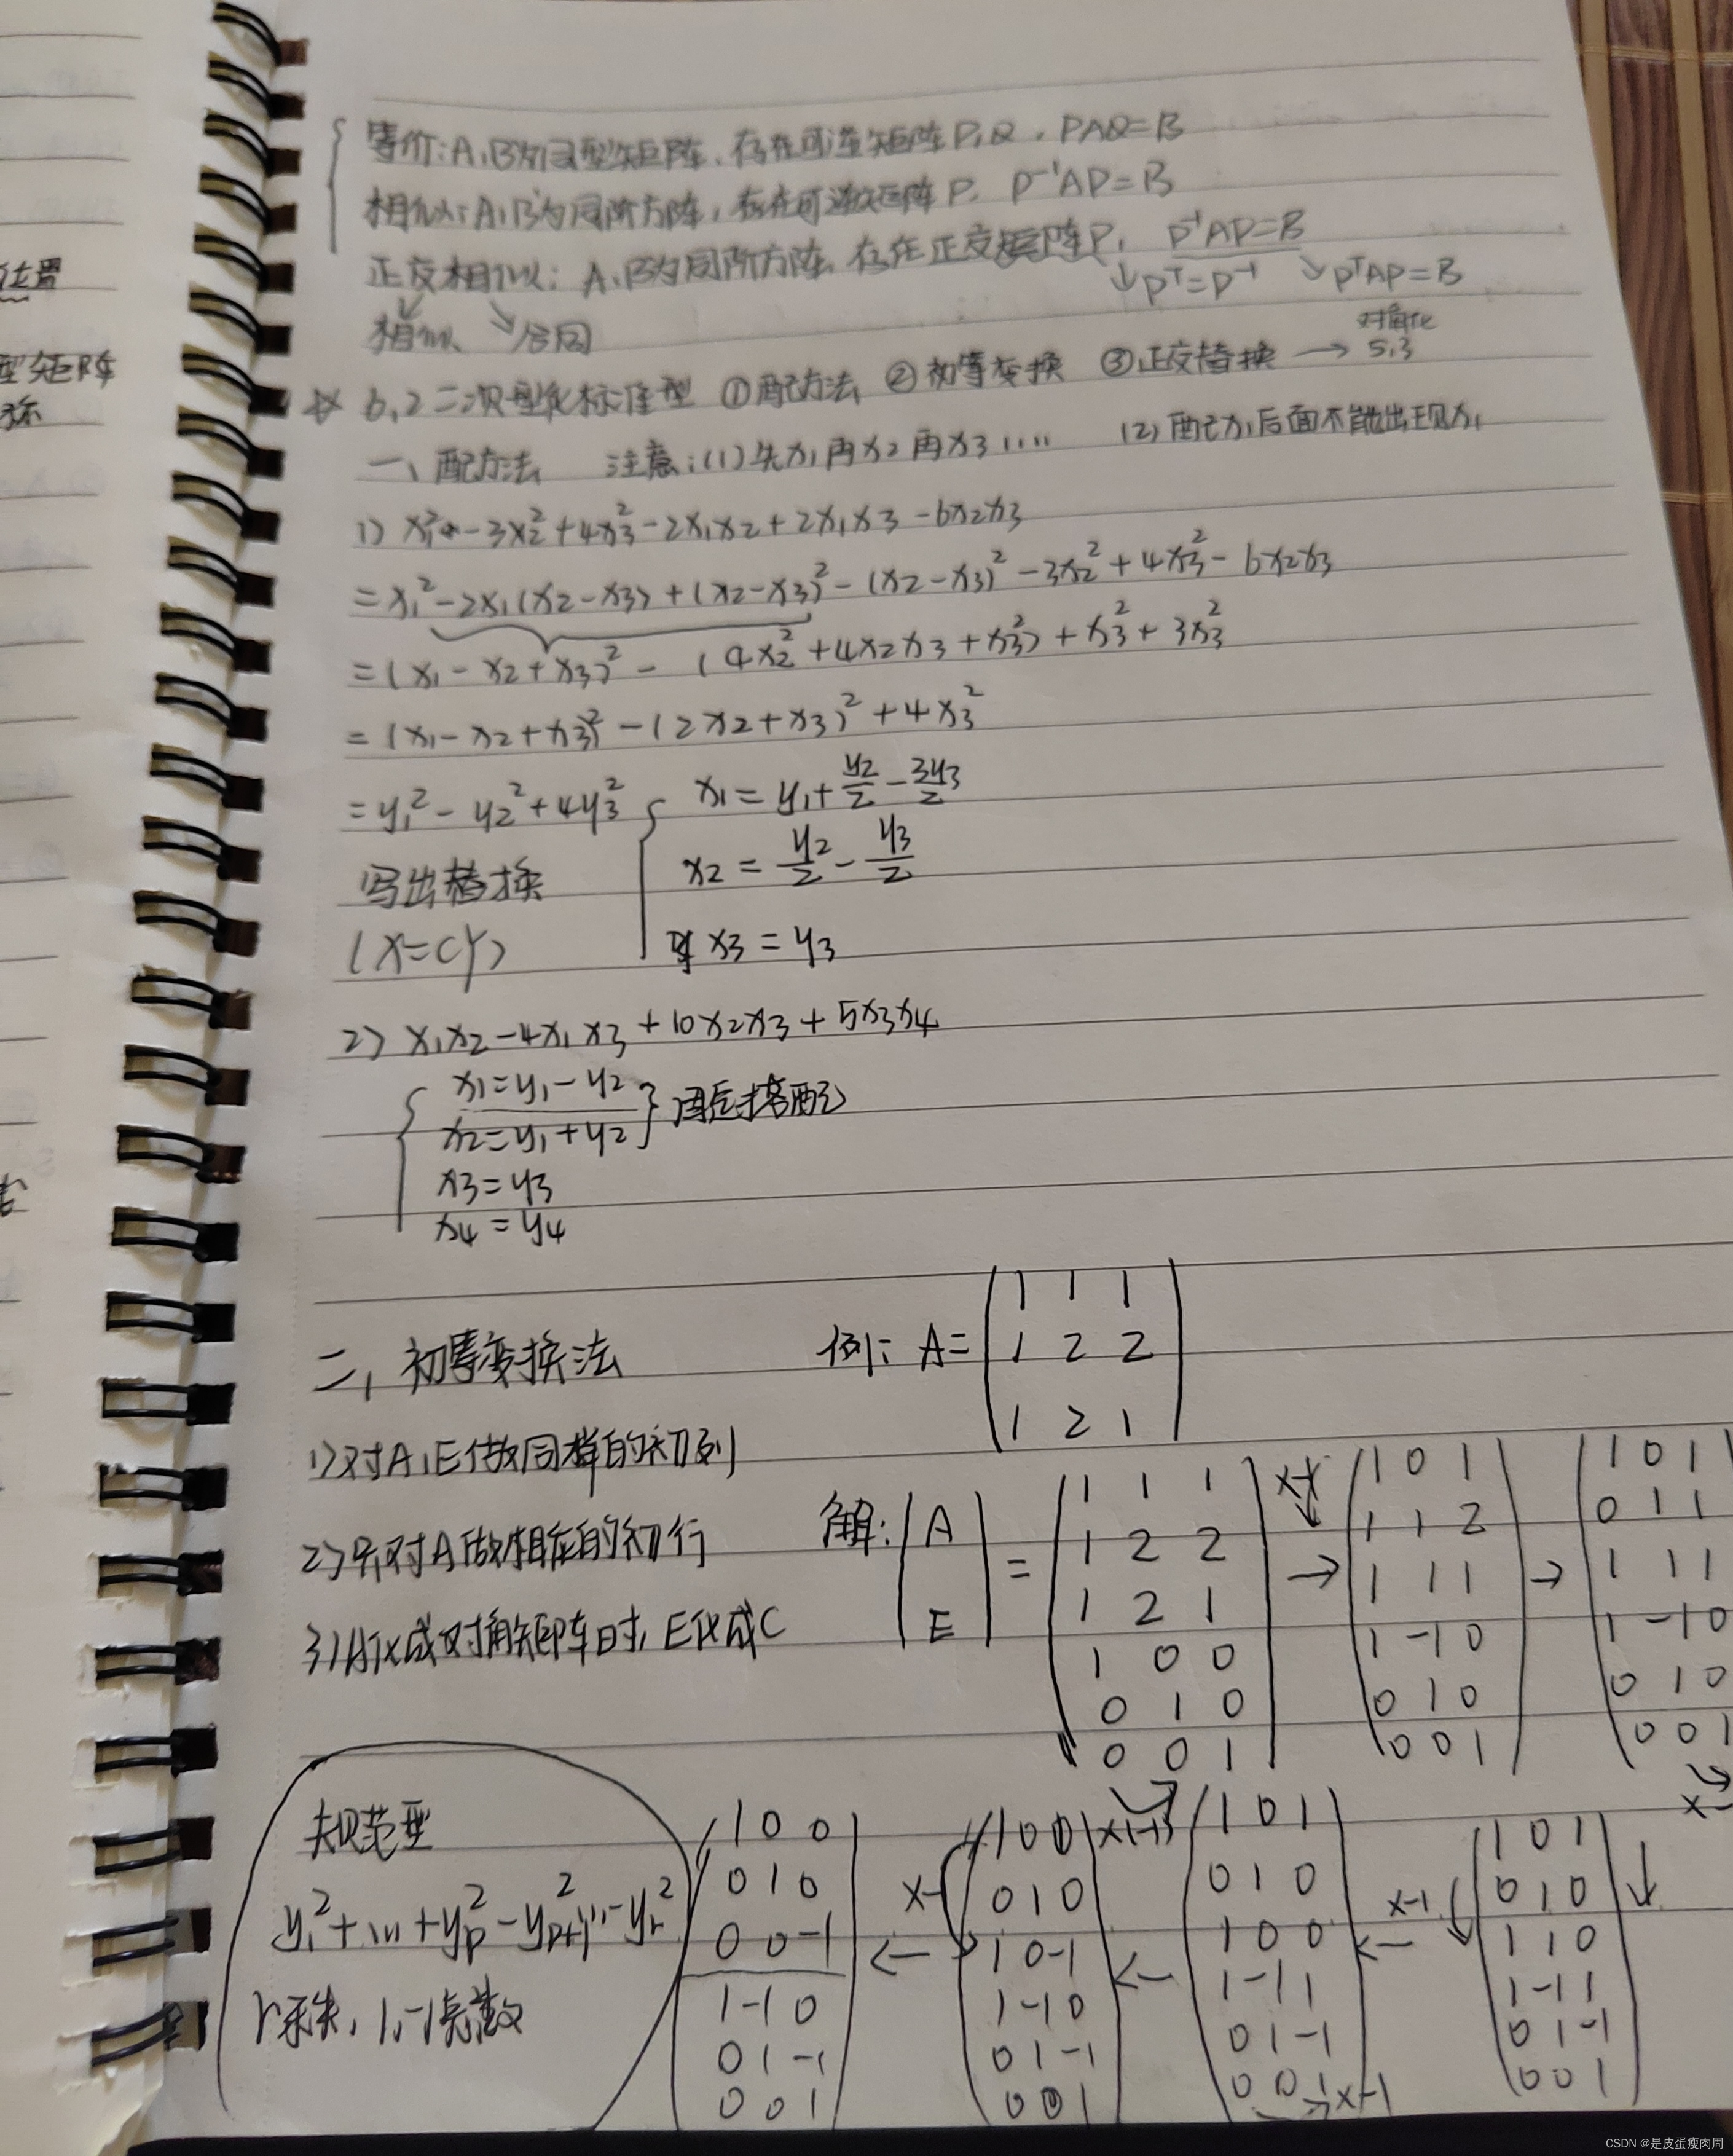 位置
型矩阵
称
等价:A,B为同型矩阵,存在可逆矩阵P,Q,PAQ=B
相似:A,B为同阶方阵,存在可逆矩阵P,P⁻¹AP=B
正交相似:A,B为同阶方阵,存在正交矩阵P,P⁻¹AP=B
↓Pᵀ=P⁻¹ ↘PᵀAP=B
↙相似 ↘合同
对角化
☆ 6.2 二次型化标准型 ①配方法 ②初等变换 ③正交替换 → 5.3
一、配方法 注意:(1)先x₁再x₂再x₃.... (2)配x₁后面不能出现x₁
1) x₁²-3x₂²+4x₃²-2x₁x₂+2x₁x₃-6x₂x₃
=x₁²-2x₁(x₂-x₃)+(x₂-x₃)²-(x₂-x₃)²-3x₂²+4x₃²-6x₂x₃
=(x₁-x₂+x₃)²-(4x₂²+4x₂x₃+x₃²)+x₃²+3x₃²
=(x₁-x₂+x₃)²-(2x₂+x₃)²+4x₃²
=y₁²-y₂²+4y₃² { x₁=y₁+y₂/2-3y₃/2
写出替换 x₂=y₂/2-y₃/2
(X=CY) x₃=y₃
2) x₁x₂-4x₁x₃+10x₂x₃+5x₃x₄
{ x₁=y₁-y₂
x₂=y₁+y₂ }
x₃=y₃
x₄=y₄
二、初等变换法 例: A=
1 1 1
1 2 2
1 2 1
1)对A,E做同样的初列
2)并对A做相应的初行
3)A化成对角矩阵时,E化成C
解: (A E) =
1 1 1
1 2 2
1 2 1
1 0 0
0 1 0
0 0 1
→
1 0 1
1 1 2
1 1 1
1 -1 0
0 1 0
0 0 1
→
1 0 1
0 1 1
1 1 1
1 -1 0
0 1 0
0 0 1
x-
↓
1 0 1
0 1 0
1 1 0
1 -1 1
0 1 -1
0 0 1
x-1
←
1 0 1
0 1 0
1 0 0
1 -1 1
0 1 -1
0 0 1
→x-1
x(-1)
←
1 0 0
0 1 0
1 0 -1
1 -1 0
0 1 -1
0 0 1
x-1
←
1 0 0
0 1 0
0 0 -1
1 -1 0
0 1 -1
0 0 1
规范型
y₁²+...+yₚ²-yₚ₊₁²...-yᵣ²
CSDN @是皮蛋瘦肉周